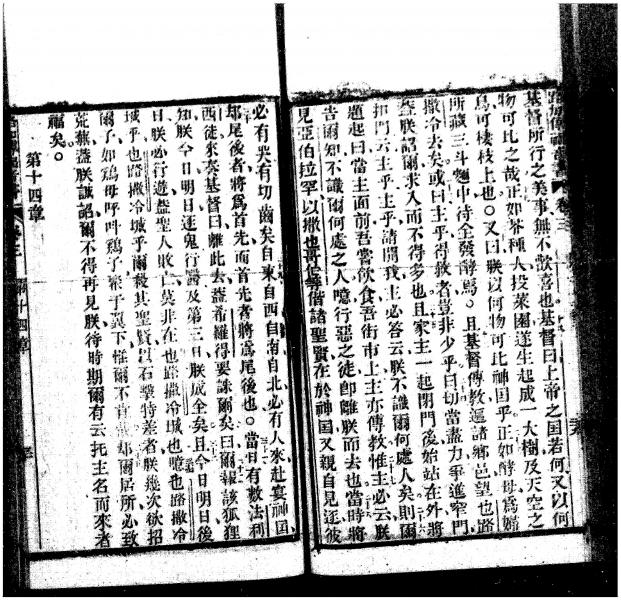 基督所行之美事無不歡喜也基督曰上帝之国若何又以何
物可比之哉正如芥種人投菜園遂生起成一大樹及天空之
鳥可棲枝上也○又曰朕以何物可比神国乎正如酵母爲婦
所藏三斗麵中待全發酵焉○且基督傳教逼諸鄉邑望也路
撒冷去矣或曰主乎得救者豈非少乎曰切當盡力爭進窄門
蓋朕語爾求入而不得多也且家主一起閉門後始站在外將
扣門云主乎主乎請開我主必答云朕不識爾何處人矣則爾
題起曰當主面前吾嘗飲食吾街市上主亦傳教惟主必云朕
告爾知不識爾何處之人噫行惡之徒卽離朕而去也當時將
見亞伯拉罕以撒也哥伯等偕諸聖賢在於神国又親自見逐彼
必有哭有切齒矣自東自西自南自北必有人來赴宴神国
却尾後者將爲首先而首先者將爲尾後也○當日有數法利
西徒來奏基督曰離此去蓋希羅得要誅爾矣曰爾報該狐狸
知朕今日明日逐鬼行醫及第三日朕成全矣且今日明日後
日朕必行遊蓋聖人敗亡莫非在也路撒冷城也噫也路撒冷
城乎也路撒冷城乎爾殺其聖賢以石擊特差者朕幾次欲招
爾子如鷄母呼叫鷄子聚于翼下惟爾不肯却爾居所必致
荒蕪蓋朕誠語爾不得再見朕待時期爾有云托主名而來者
福矣。
第十四章